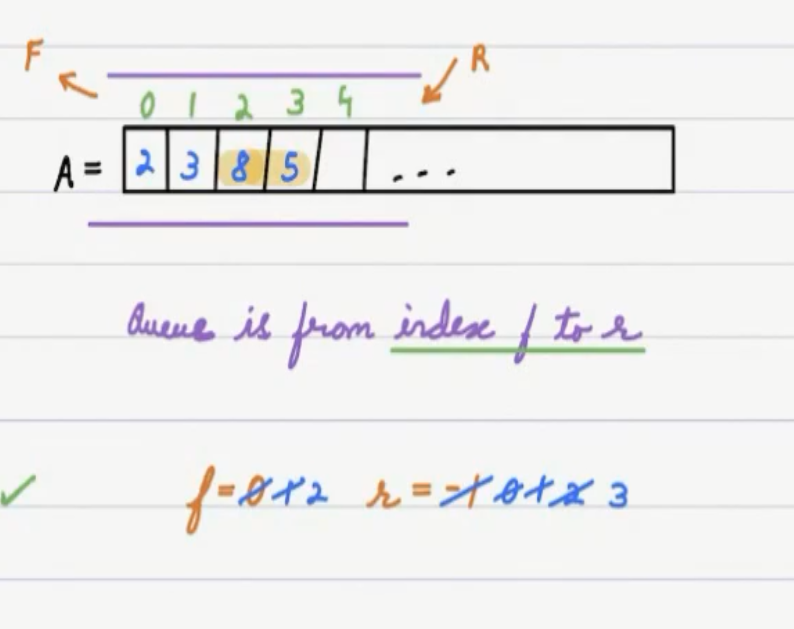 F R
0 1 2 3 4
A = 2 3 8 5 ...
Queue is from index f to r
f = 0 1 2 r = -1 0 1 2 3